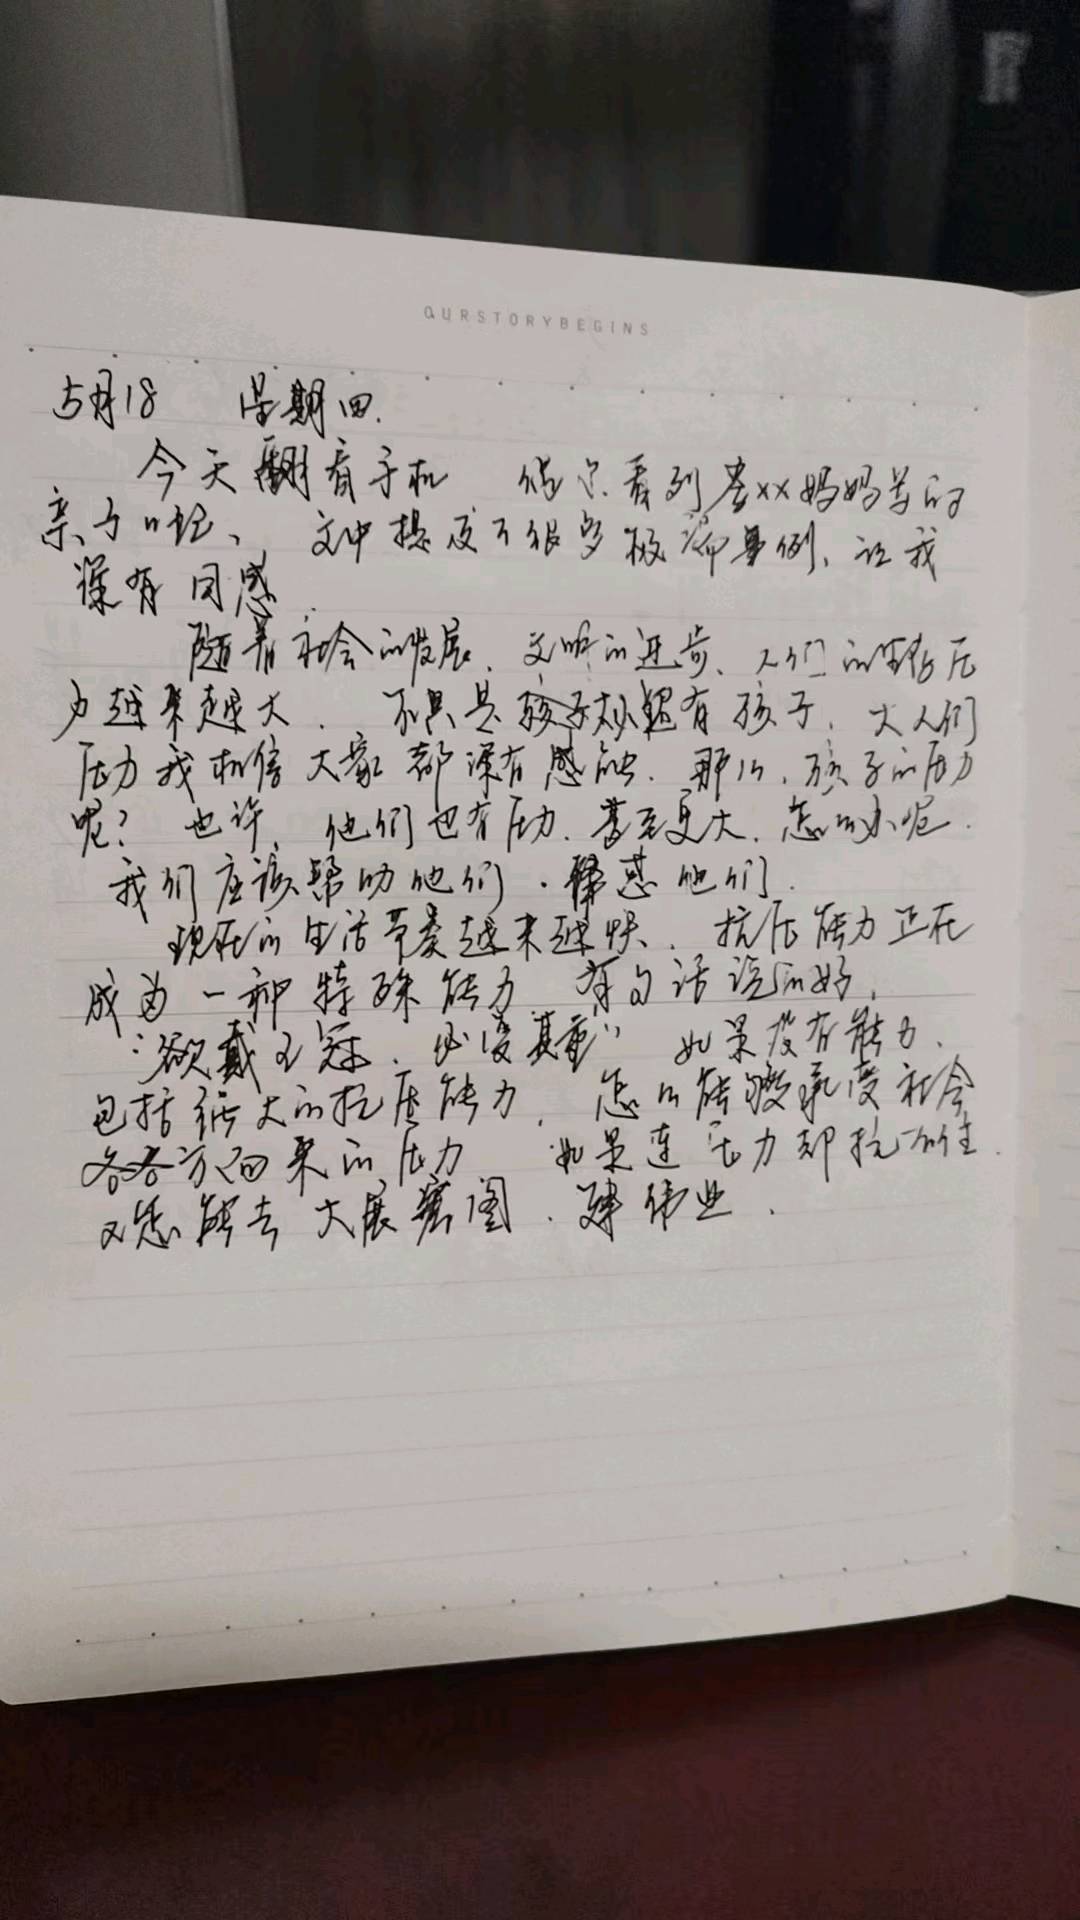 OURSTORYBEGINS
5月18 星期四.
今天翻看手机 偶尔看到李xx妈妈写的
亲子日记、 文中提及了很多极端事例、让我
深有同感.
随着社会的发展、文明的进步、人们的生存压
力越来越大. 不只是有孩子. 大人们
压力我相信大家都深有感触. 那么、孩子的压力
呢? 也许, 他们也有压力、甚至更大、怎么办呢.
我们应该帮助他们、解惑他们.
现在的生活节奏越来越快、抗压能力正在
成为一种特殊能力 有句话说的好,
“欲戴王冠、必受其重” 如果没有能力、
包括强大的抗压能力, 怎么能够承受社会
各方面来的压力 如果连压力都抗不住.
又怎能去大展宏图、建伟业.